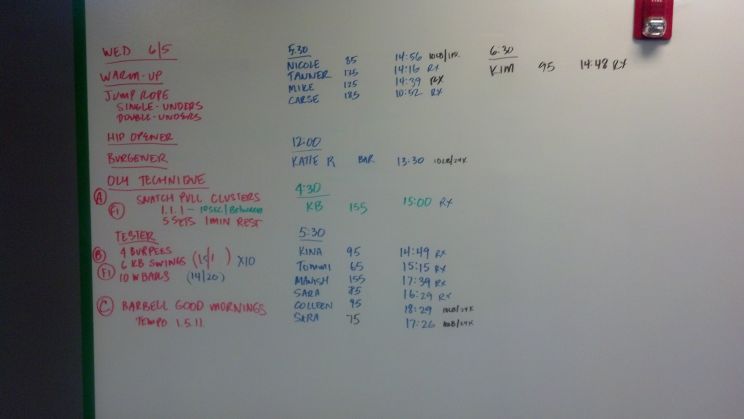 WED 6/5
WARM-UP
JUMP ROPE
SINGLE-UNDERS
DOUBLE-UNDERS
HIP OPENER
BURGENER
OLY TECHNIQUE
A SNATCH PULL CLUSTERS
F1 1.1.1 - 10SEC/BETWEEN
5 SETS 1 MIN REST
TESTER
B 4 BURPEES
6 KB SWINGS (1.5/1) X10
F1 10 WBALLS (14/20)
C BARBELL GOOD MORNINGS
TEMPO 1.5.1.1
5:30
NICOLE 85 14:56
TANNER 125 14:16 RX
MIKE 125 14:39 RX
CARSE 185 10:52 RX
12:00
KATIE R BAR 13:30
4:30
KB 155 15:00 RX
5:30
KINA 95 14:49 RX
TOMMI 65 15:15 RX
MANISH 155 17:39 RX
SARA 85 16:29 RX
COLLEEN 95 18:29
SARA 75 17:26
6:30
KIM 95 14:48 RX